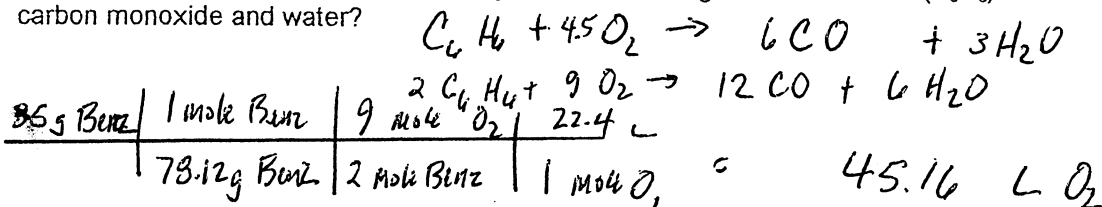 carbon monoxide and water?
C₆H₆ + 4.5 O₂ → 6 CO + 3 H₂O
2 C₆H₆ + 9 O₂ → 12 CO + 6 H₂O
35 g Benz | 1 mole Benz | 9 mole O₂ | 22.4 L
78.12g Benz | 2 mole Benz | 1 mole O₂ = 45.16 L O₂